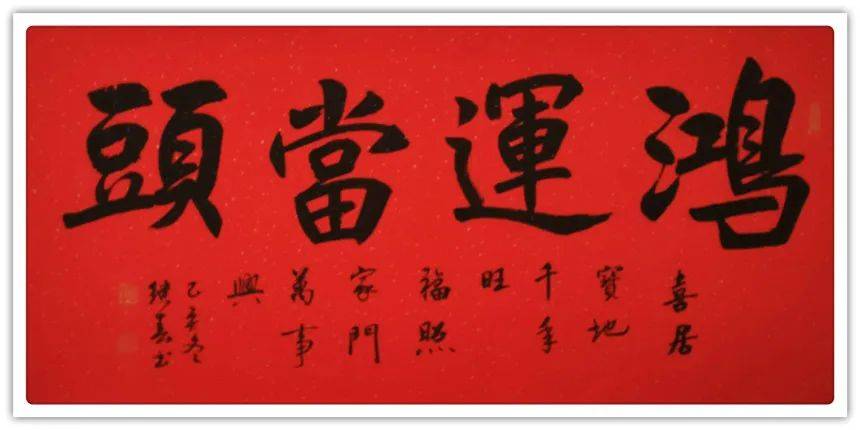 鴻運當頭
喜居
寶地
千年
旺
福照
家門
萬事
興
冬
书